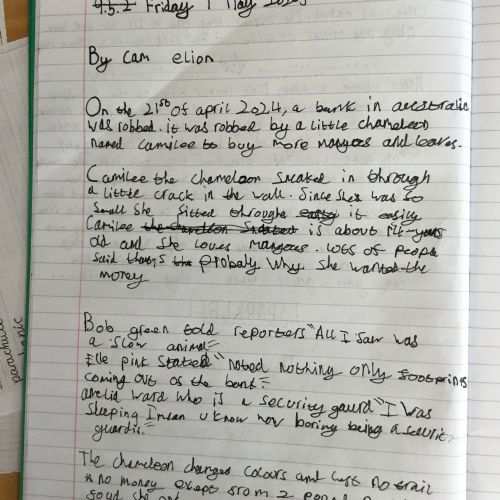 9.5.2 Friday 1 May
By Cam elion
On the 21st of april 2024, a bank in australia
was robbed. it was robbed by a little chameleon
named camilee to buy more mangoes and leaves.
Camilee the chameleon sneaked in through
a little crack in the wall. Sinse she was so
small she fitted throught easily it easily
Camilee the chameleon stated is about 14-years
old and she loves mangoes. lots of people
said that,s the probaly why she wanted the
money
Bob green told reporters "All I saw was
a slow animal"
Elle pink stated "noted nothing only footprints
coming out of the bank"
amelia ward who is a security gaurd "I was
sleeping I mean u know how boring being a securit
guard is."
The chameleon changed colours and left no trail
no money exept from 2
parachute